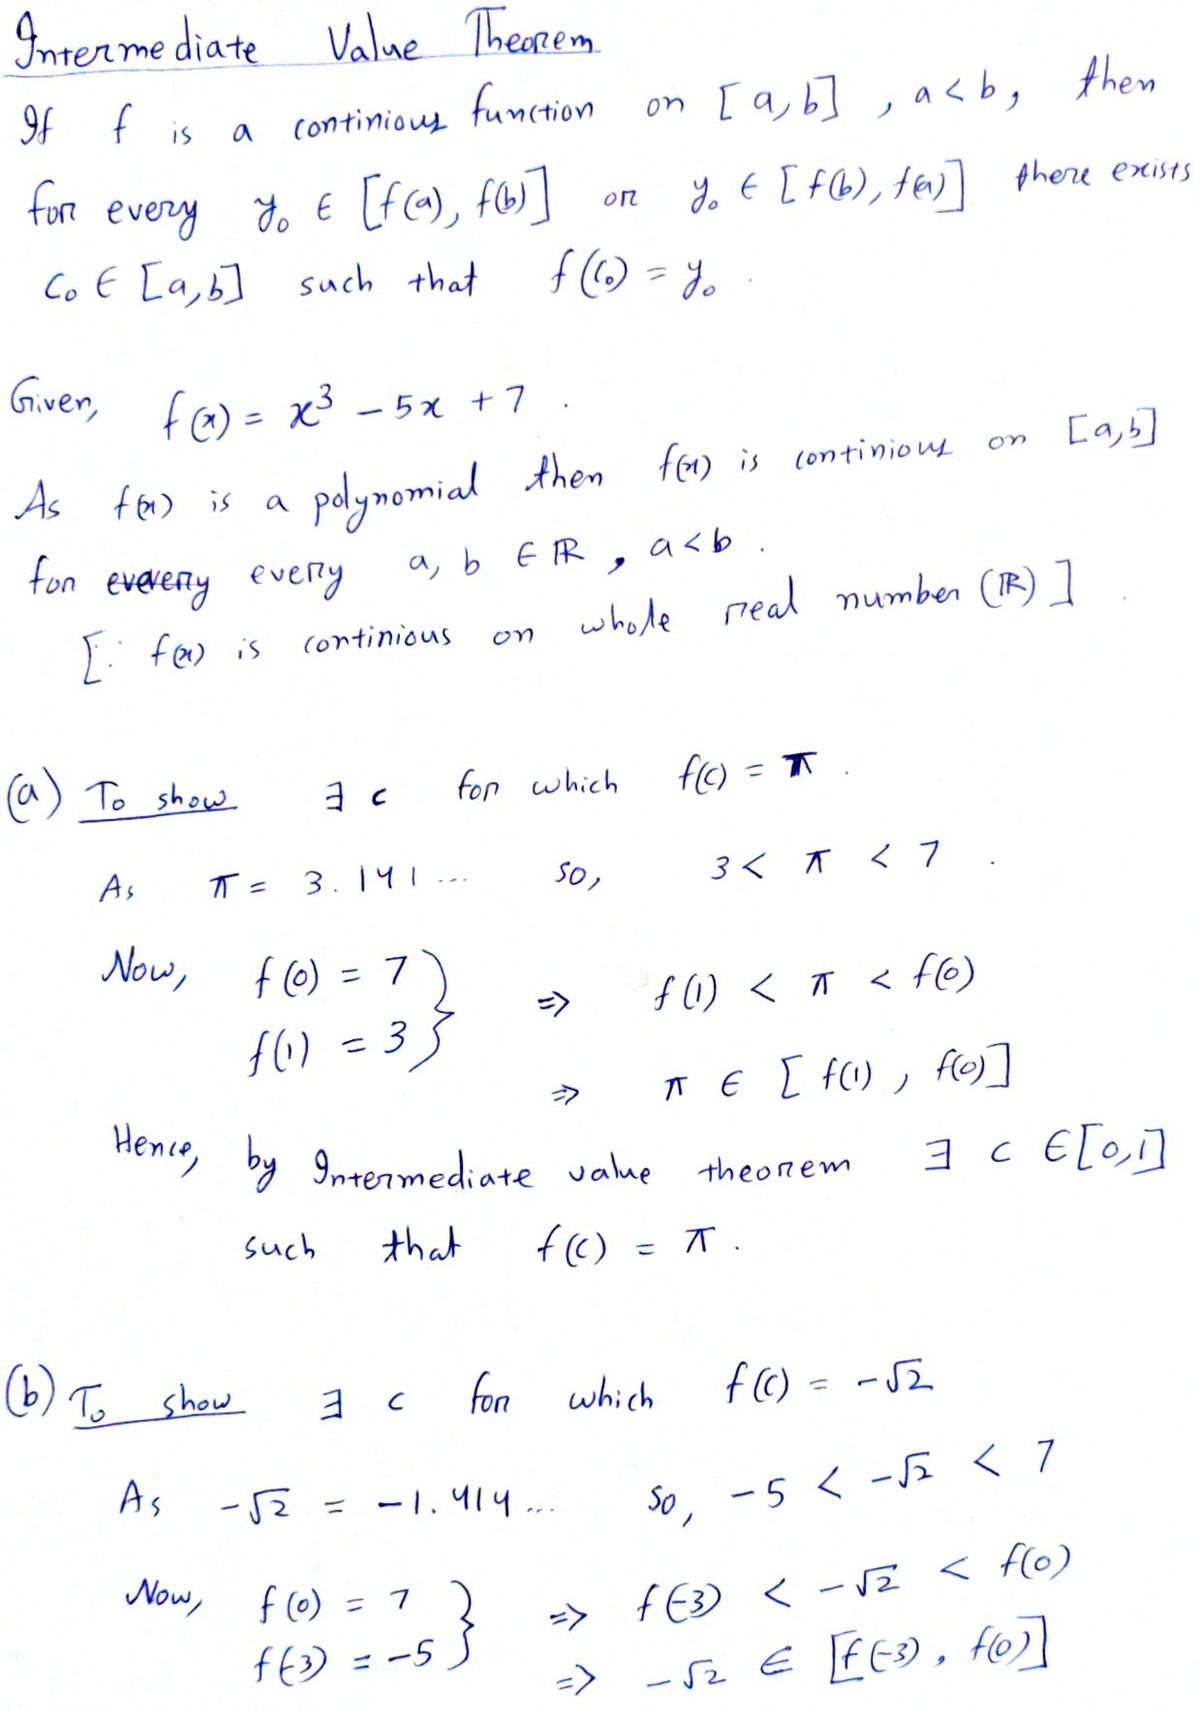 Intermediate Value Theorem
If f is a continious function on [a,b] , a<b, then
for every y₀ ∈ [f(a), f(b)] or y₀ ∈ [f(b), f(a)] there exists
c₀ ∈ [a,b] such that f(c₀) = y₀ .
Given, f(x) = x³ – 5x + 7 .
As f(x) is a polynomial then f(x) is continious on [a,b]
for every a, b ∈ ℝ , a<b .
[∵ f(x) is continious on whole real number (ℝ) ] .
(a) To show ∃ c for which f(c) = π .
As π = 3.141... so, 3 < π < 7 .
Now, f(0) = 7 } ⇒ f(1) < π < f(0)
f(1) = 3 } ⇒ π ∈ [ f(1) , f(0)]
Hence, by Intermediate value theorem ∃ c ∈ [0,1]
such that f(c) = π .
(b) To show ∃ c for which f(c) = -√2
As -√2 = -1.414... so, -5 < -√2 < 7
Now, f(0) = 7 } ⇒ f(-3) < -√2 < f(0)
f(-3) = -5 } ⇒ -√2 ∈ [f(-3), f(0)]